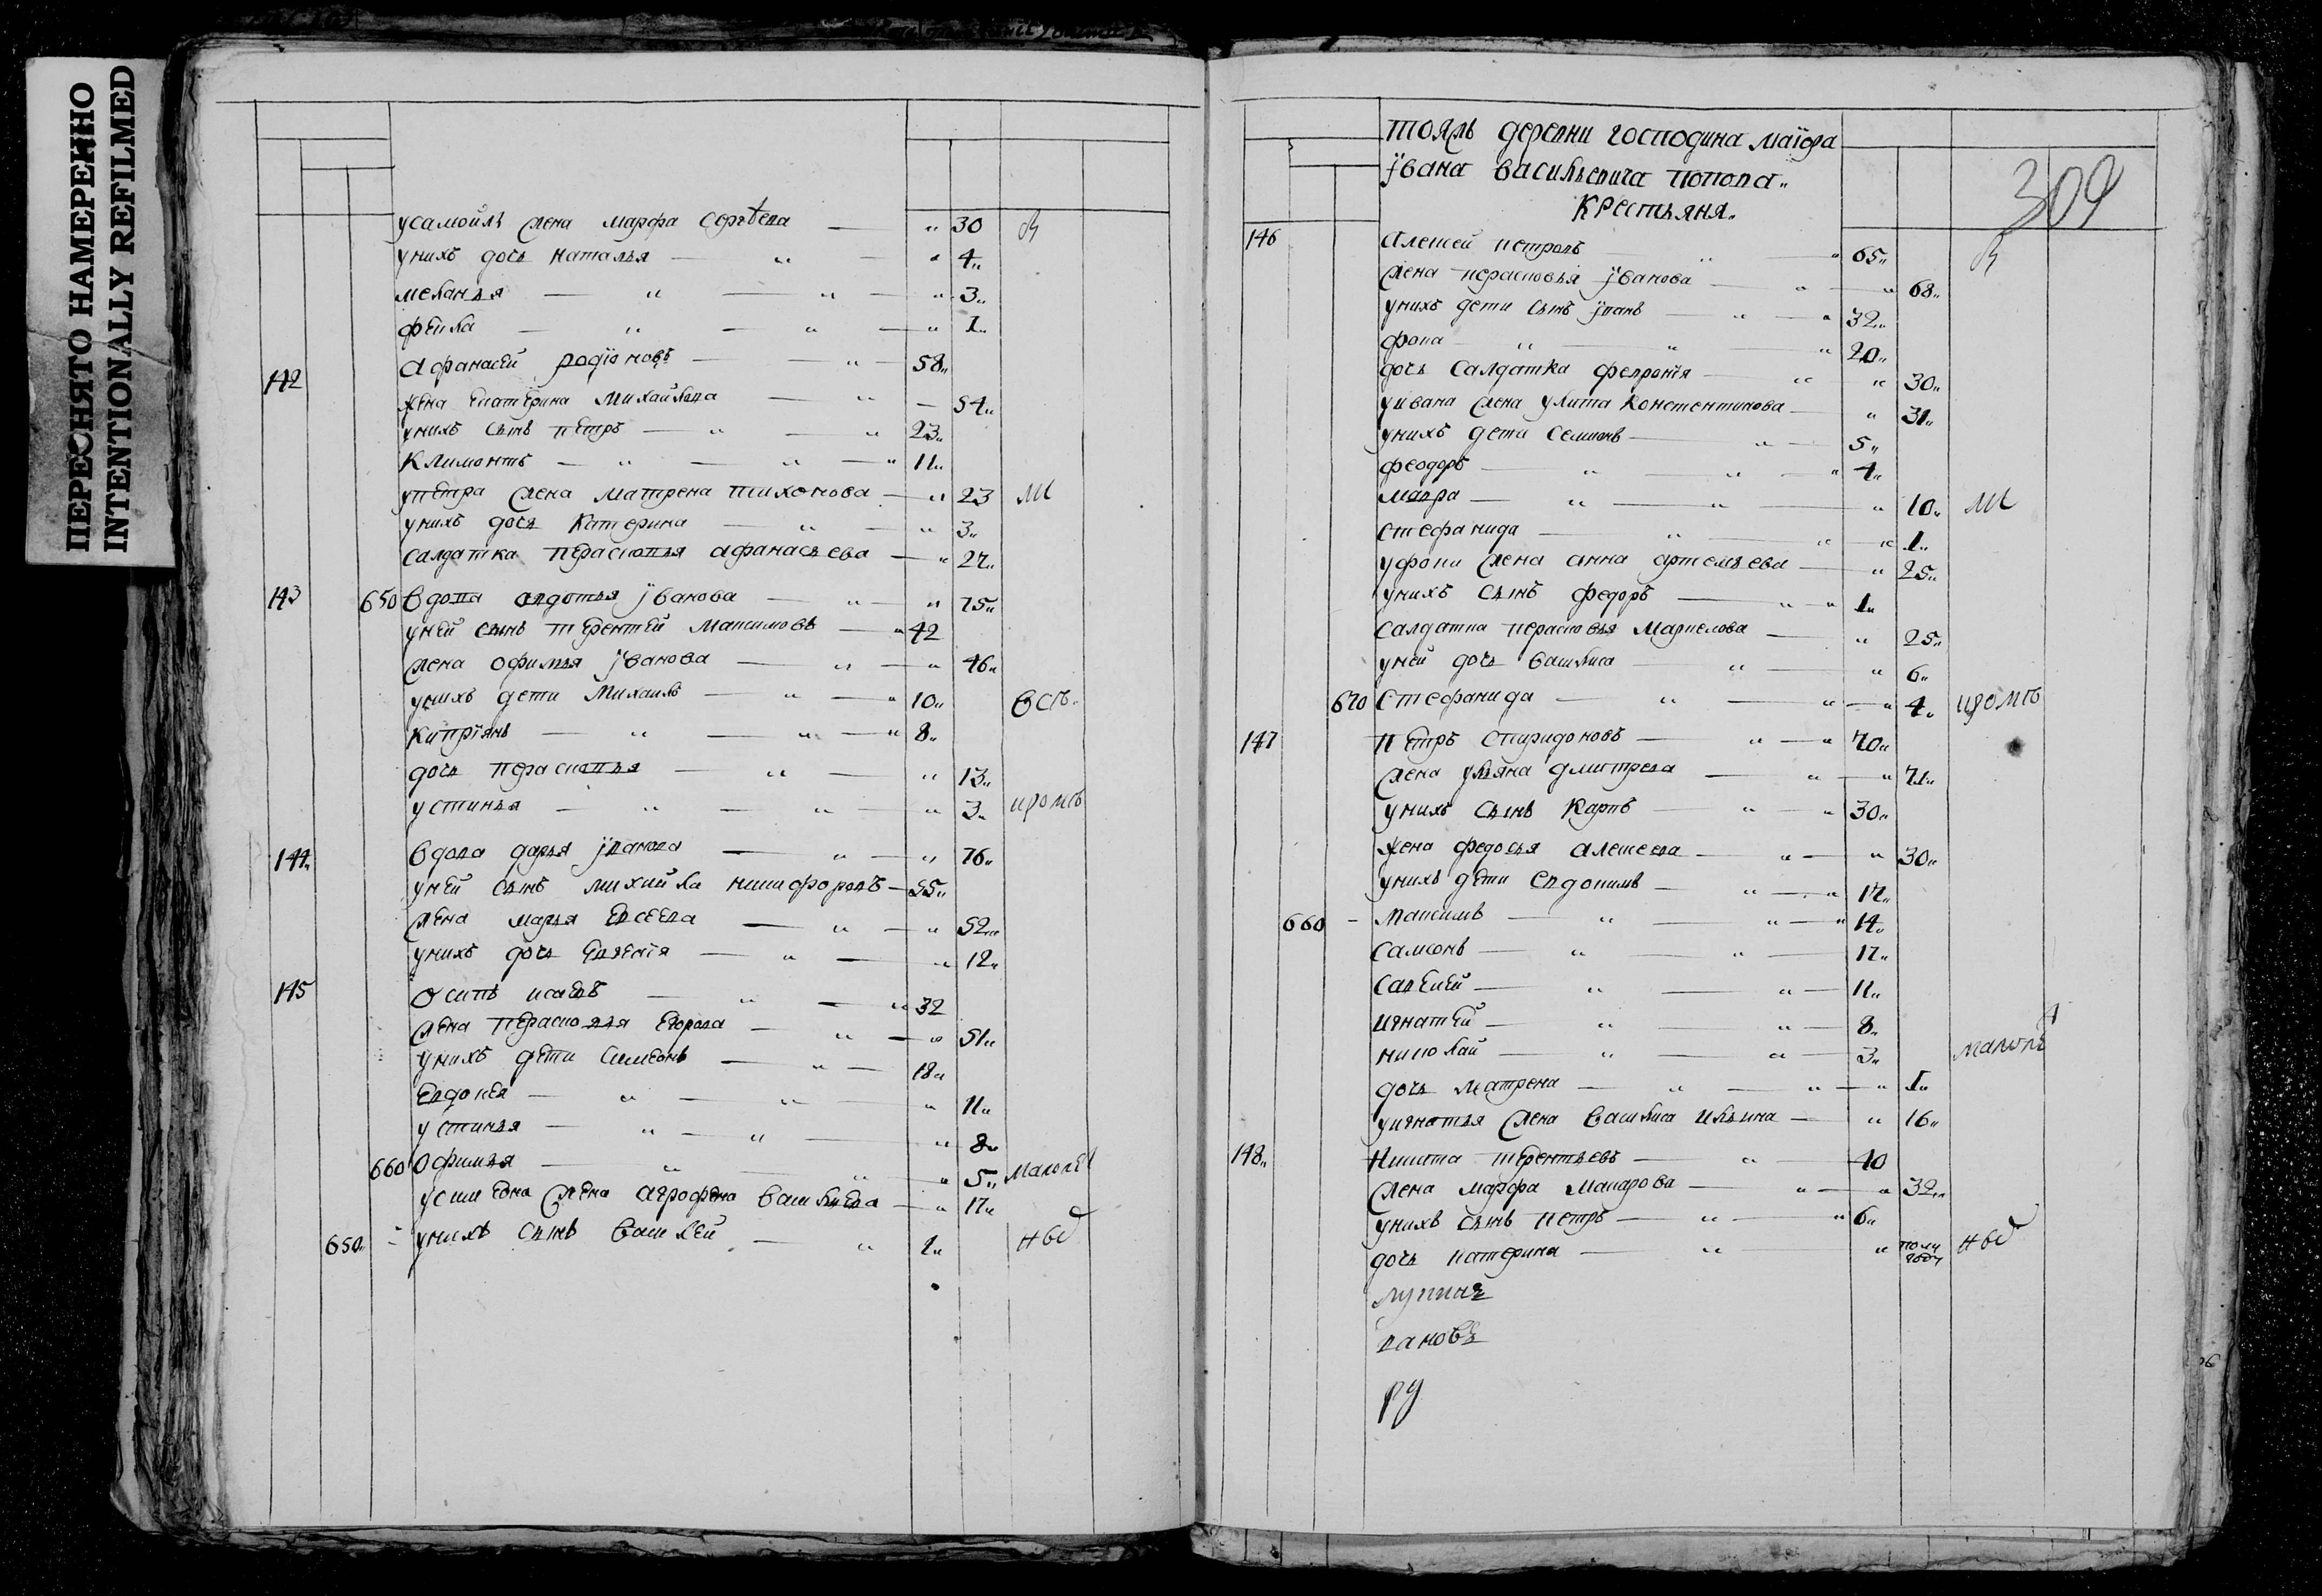 ПЕРЕСНЯТО НАМЕРЕННО
INTENTIONALLY REFILMED
усамойлы жена марфа сергѣева 30
унихъ дочь наталья 4
меланья 3
феѣкла 1
142 афанасей родiоновъ 58
жена екатерина михайлова 54
унихъ сынъ петръ 23
климонтъ 11
упетра жена матрена тихонова 23
унихъ дочь катерина 3
салдатка парасковья афанасьева 27
143 650 вдова авдотья iванова 75
уней сынъ терентей максимовъ 42
жена офимья iванова 46
унихъ дети михаилъ 10
кипрiянъ 8
дочь парасковья 13
устинья 3
144 вдова дарья iванова 76
уней сынъ михайла никифоровъ 55
жена марья евсеева 52
унихъ дочь евгенiя 12
145 осипъ исаевъ 32
жена парасковья егорова 51
унихъ дети симеонъ 18
евдокея 11
устинья 8
660 офимья 5
усимеона жена агрофена васильева 17
650 унихъ сынъ василей 1
тояжъ деревни господина маiора
iвана васильевича попова
крестьяня
309
146 алексей петровъ 65
жена перасковья iванова 68
унихъ дети сынъ iванъ 32
фока 20
дочь салдатка февронiя 30
уивана жена улита констентинова 31
унихъ дети семионъ 5
феодоръ 4
мавра 10
стефанида 1
уфоки жена анна артемьева 25
унихъ сынъ федоръ 1
салдатка перасковья маркелова 25
уней дочь василиса 6
670 стефанида 4
147 петръ спиридоновъ 70
жена ульяна дмитрева 71
унихъ сынъ карпъ 30
жена федосья алексеева 30
унихъ дети евдокимъ 17
660 максимъ 14
самсонъ 12
савелей 11
игнатей 8
николай 3
дочь матрена 1
уигнатья жена василиса ильина 16
148 никита терентьевъ 40
жена марфа макарова 32
унихъ сынъ петръ 6
дочь катерина полу году
ру